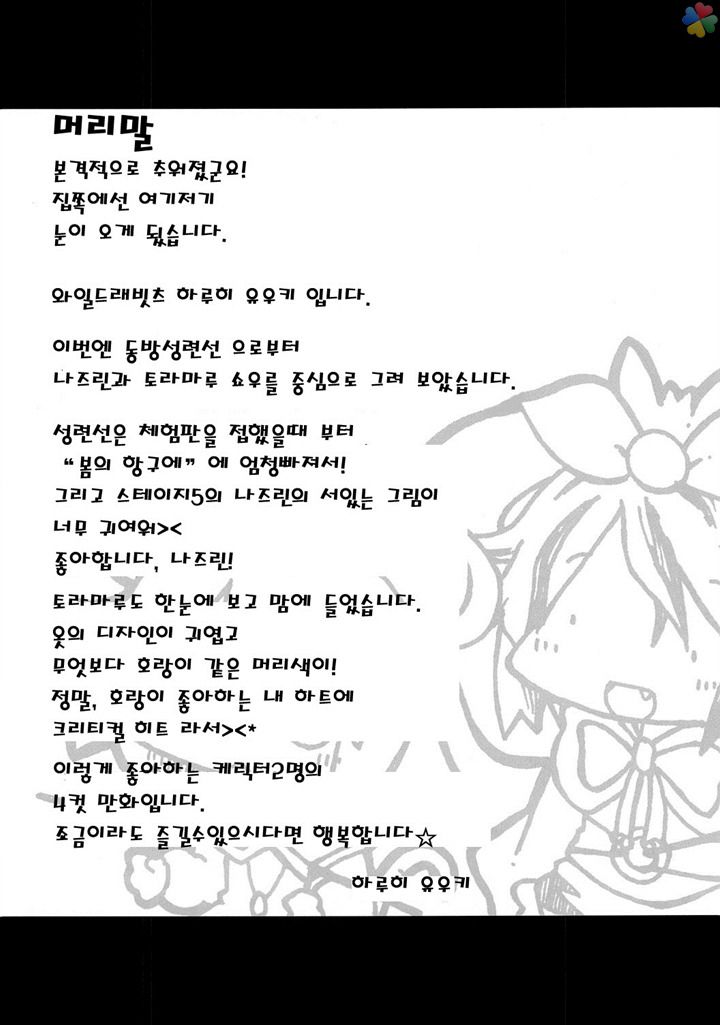 머리말
본격적으로 추워졌군요!
집쪽에선 여기저기
눈이 오게 됬습니다.
와일드래빗츠 하루히 유우키 입니다.
이번엔 동방성련선 으로부터
나즈린과 토라마루 쇼우를 중심으로 그려 보았습니다.
성련선은 체험판을 접했을때 부터
“봄의 항구에” 에 엄청빠져서!
그리고 스테이지5의 나즈린의 서있는 그림이
너무 귀여워><
좋아합니다, 나즈린!
토라마루도 한눈에 보고 맘에 들었습니다.
옷의 디자인이 귀엽고
무엇보다 호랑이 같은 머리색이!
정말, 호랑이 좋아하는 내 하트에
크리티컬 히트 라서><*
이렇게 좋아하는 케릭터2명의
4컷 만화입니다.
조금이라도 즐길수있으시다면 행복합니다☆
하루히 유우키